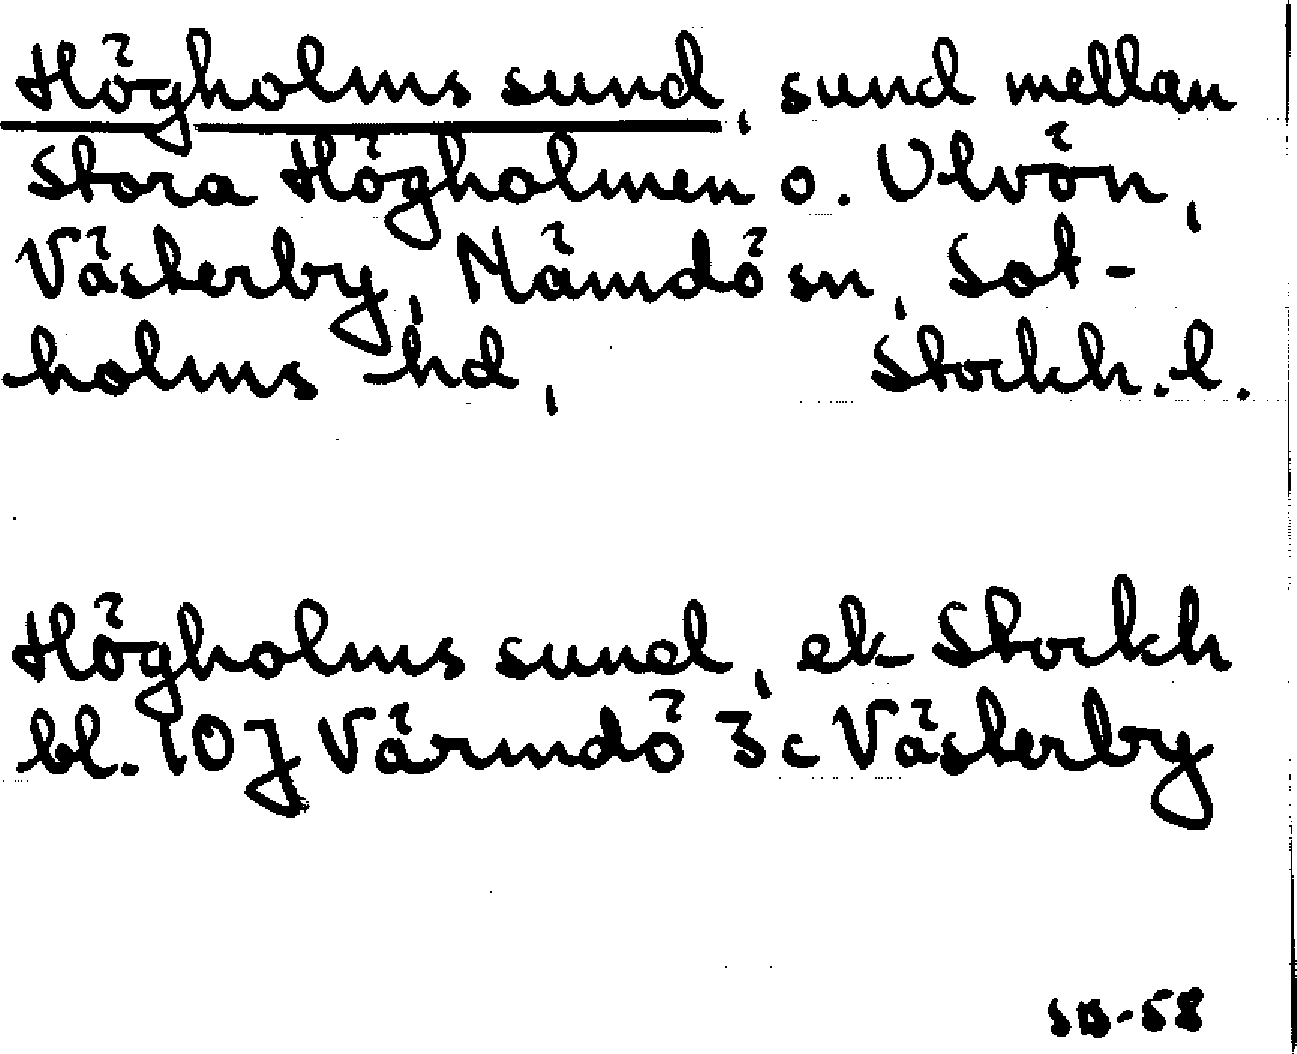 Högholms sund, sund mellan
Stora Högholmen o. Ulvön,
Västerby, Nämdö sn, Sot-
holms hd, Stockh. l.
Högholms sund, ek Stockh
bl. 107 Värmdö 3c Västerby
SB-58